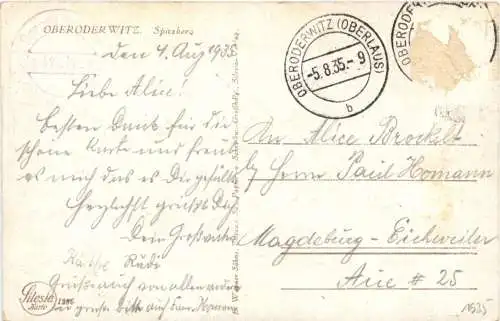 OBERODERWITZ. Spitzberg
den 4. Aug 1935
Liebe Alice!
besten Dank für die
schöne Karte und freut
es mich das es Dir gefällt
Herzlichst grüßt Dich
Dein
Käthe Rudi
Grüße auch von allen andern
bitte auch Fam. Homann
Silesia
Karte 1286
OBERODERWITZ (OBERLAUS)
-5.8.35.-9
b
OBERODERWITZ
An Alice
b/ Herrn Paul Homann
Magdeburg-Eichweiler
Aue # 25
1935